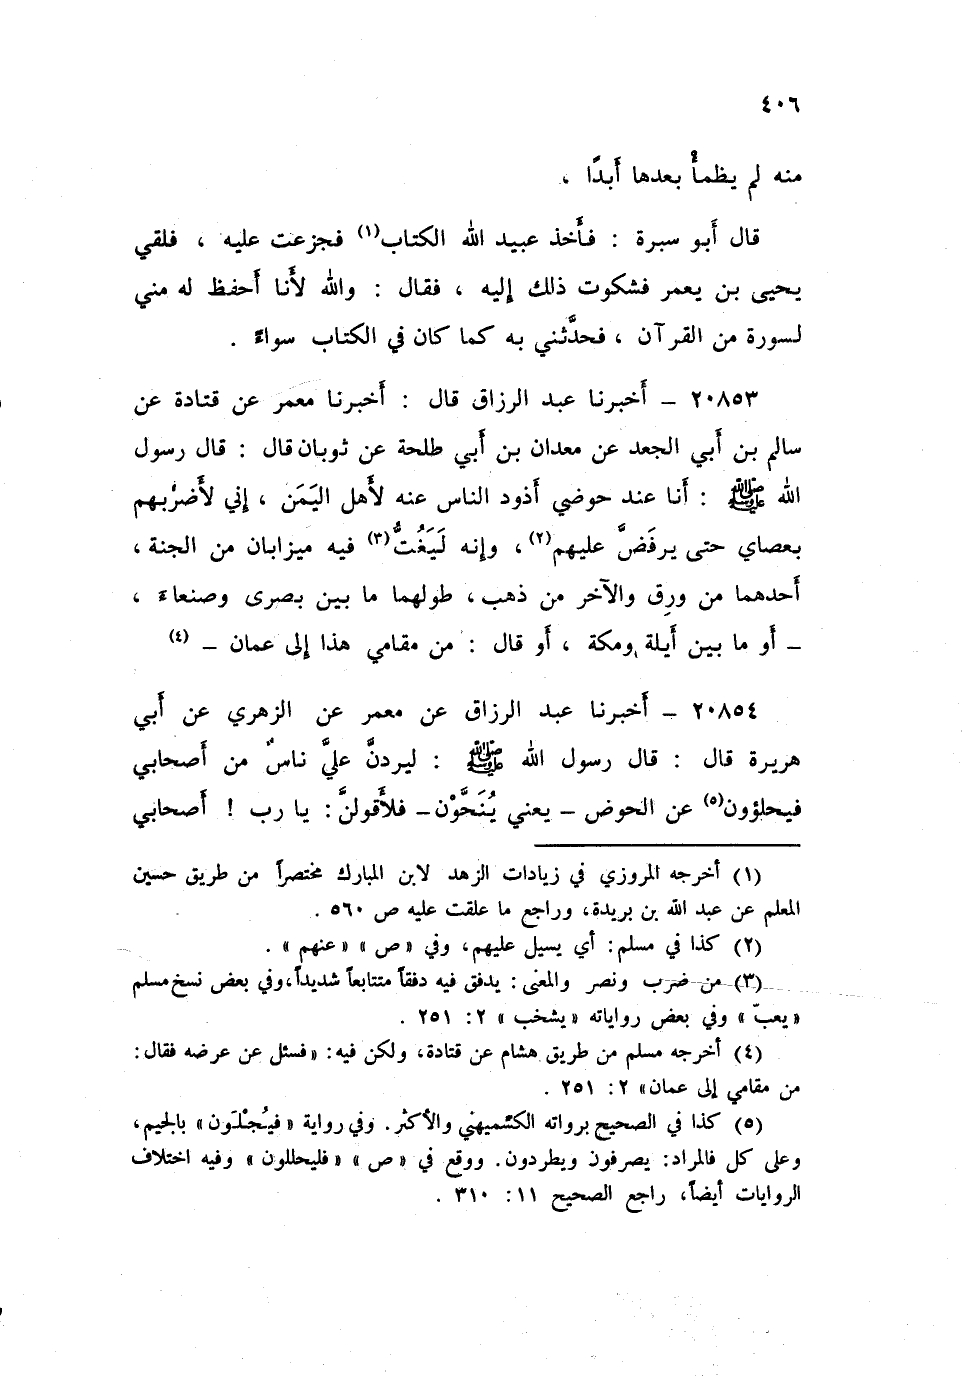 ٤٠٦
منه لم يظمأْ بعدها أَبدًا ،
قال أَبو سبرة : فأَخذ عبيد الله الكتاب(١) فجزعت عليه ، فلقي
يحيى بن يعمر فشكوت ذلك إليه ، فقال : والله لأَنا أَحفظ له مني
لسورة من القرآن ، فحدَّثني به كما كان في الكتاب سواءً .
٢٠٨٥٣ – أَخبرنا عبد الرزاق قال : أَخبرنا معمر عن قتادة عن
سالم بن أَبي الجعد عن معدان بن أَبي طلحة عن ثوبان قال : قال رسول
الله ﷺ : أَنا عند حوضي أذود الناس عنه لأَهل اليَمَن ، إني لأَضرْبهم
بعصاي حتى يرفَضَّ عليهم(٢) ، وإنه لَيَغُتُّ(٣) فيه ميزابان من الجنة ،
أَحدهما من ورِق والآخر من ذهب ، طولهما ما بين بصرى وصنعاء ،
– أَو ما بين أَيلة ومكة ، أَو قال : من مقامي هذا إلى عمان – (٤)
٢٠٨٥٤ – أَخبرنا عبد الرزاق عن معمر عن الزهري عن أَبي
هريرة قال : قال رسول الله ﷺ : ليردنَّ عليَّ ناسٌ من أَصحابي
فيحلؤون(٥) عن الحوض – يعني يُنَحَّوْن – فلأَقولنَّ : يا رب ! أَصحابي
(١) أخرجه المروزي في زيادات الزهد لابن المبارك مختصراً من طريق حسين
المعلم عن عبد الله بن بريدة، وراجع ما علقت عليه ص ٥٦٠ .
(٢) كذا في مسلم : أي يسيل عليهم، وفي «ص» «عنهم» .
(٣) من ضرب ونصر والمعنى : يدفق فيه دفقاً متتابعاً شديداً، وفي بعض نسخ مسلم
«يعبّ» وفي بعض رواياته «يشخب» ٢ : ٢٥١ .
(٤) أخرجه مسلم من طريق هشام عن قتادة، ولكن فيه : «فسئل عن عرضه فقال :
من مقامي إلى عمان» ٢ : ٢٥١ .
(٥) كذا في الصحيح برواته الكشميهني والأكثر. وفي رواية «فيُجْلَون» بالجيم،
وعلى كل فالمراد : يصرفون ويطردون. ووقع في «ص» «فليحللون» وفيه اختلاف
الروايات أيضاً، راجع الصحيح ١١ : ٣١٠ .